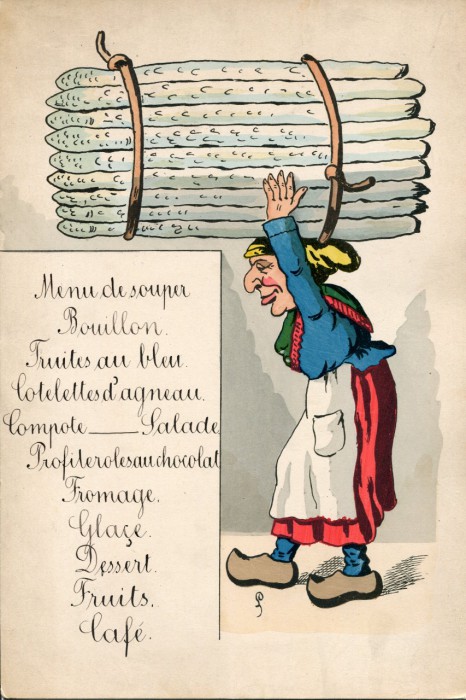 Menu de souper
Bouillon.
Truites au bleu.
Cotelettes d'agneau.
Compote — Salade
Profiteroles au chocolat
Fromage.
Glaçe.
Dessert.
Fruits.
Café.